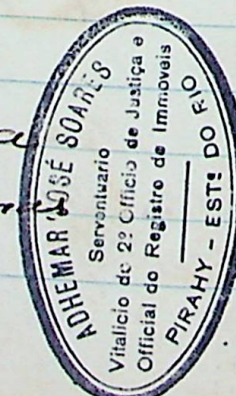 ADHEMAR JOSÉ SOARES
Serventuario
Vitalicio do 2º Officio de Justiça e
Official do Registro de Immoveis
PIRAHY - ESTº DO RIO